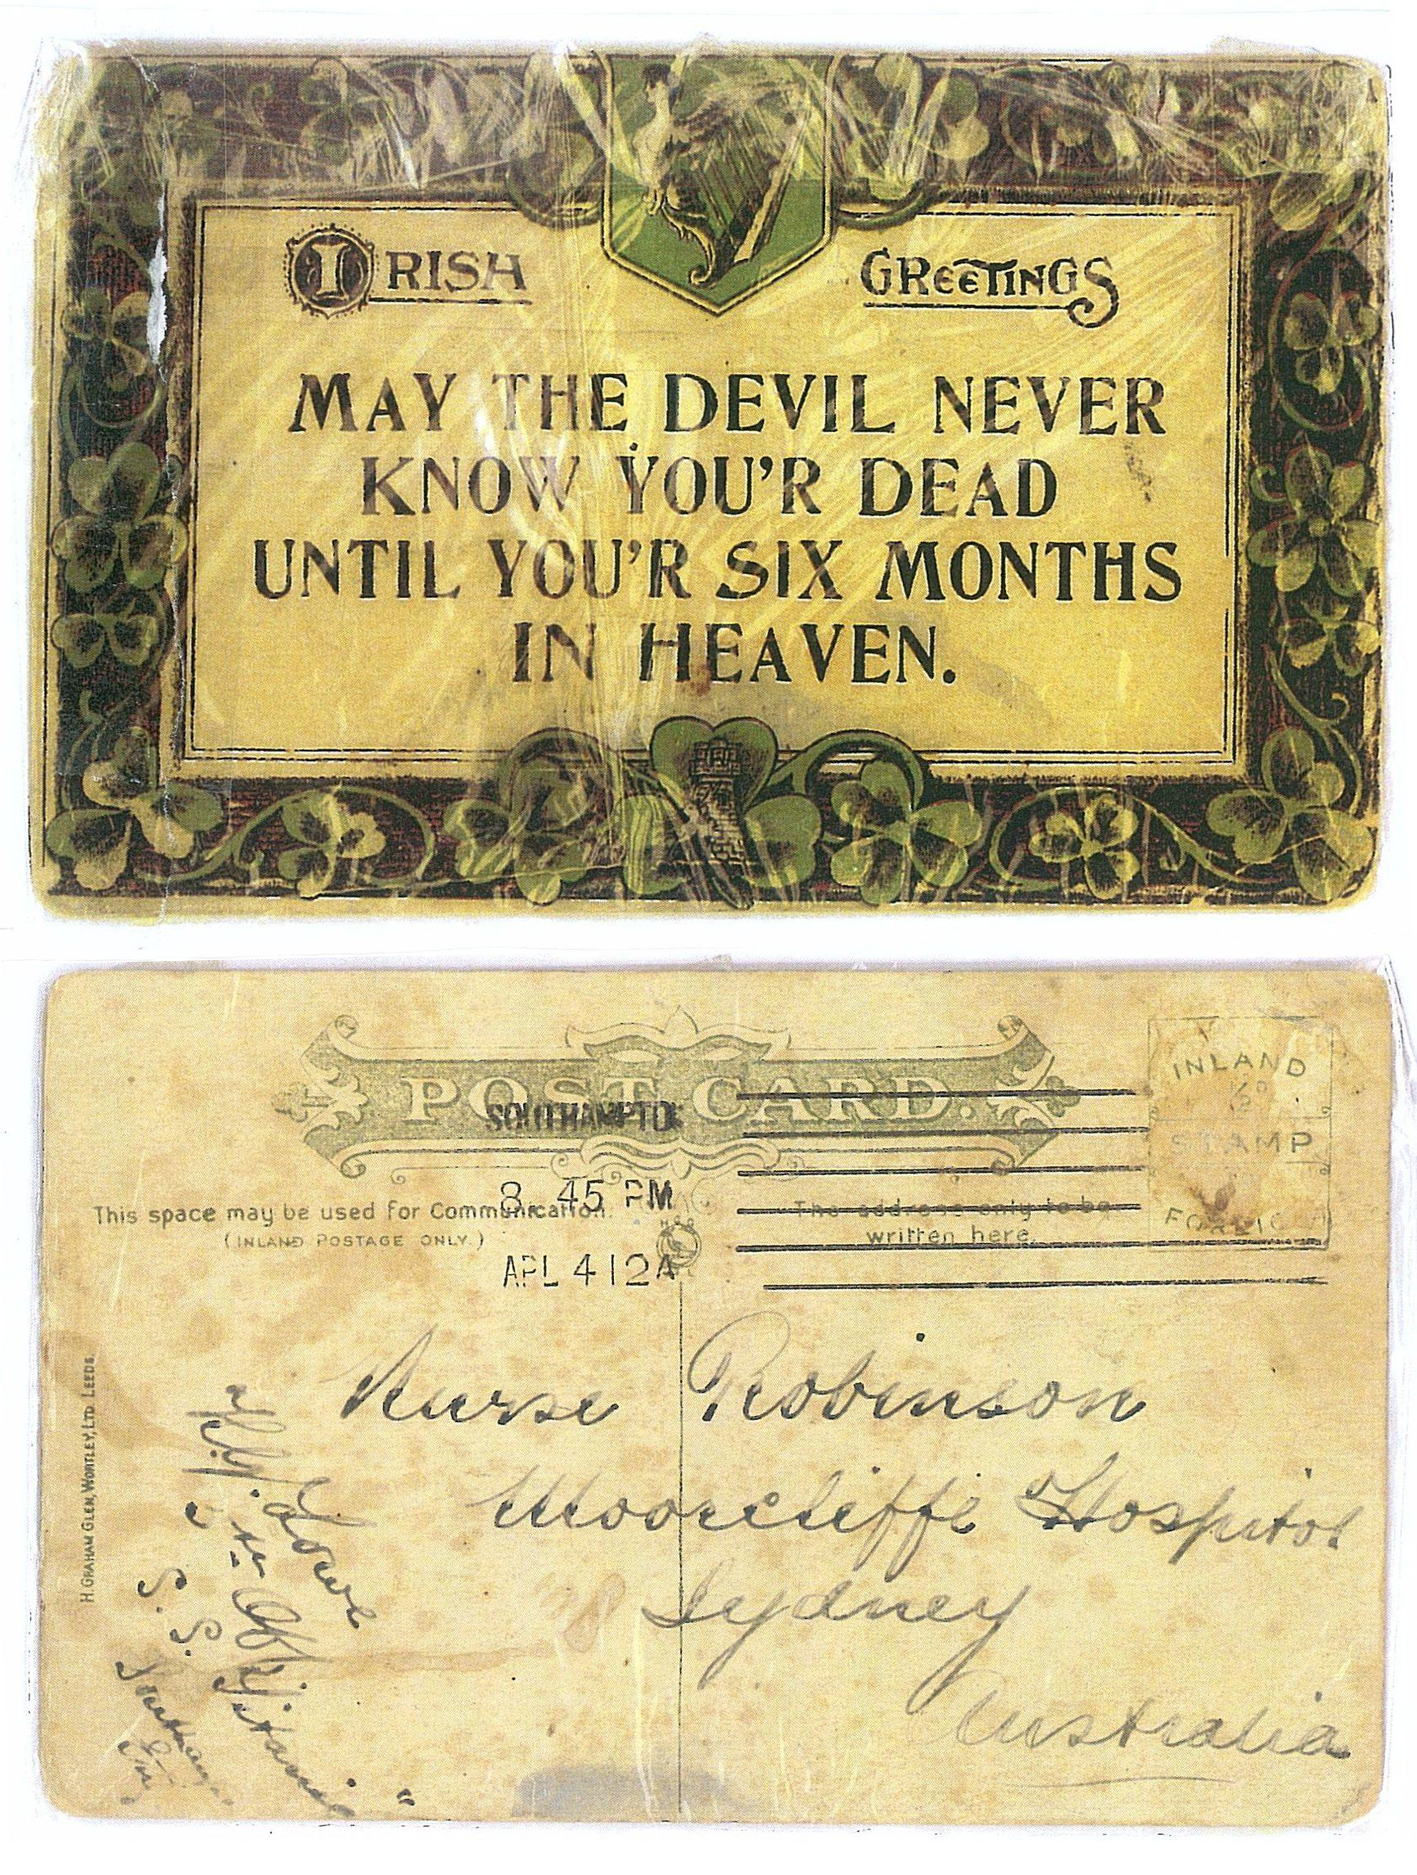 IRISH GREETINGS
MAY THE DEVIL NEVER
KNOW YOU'R DEAD
UNTIL YOU'R SIX MONTHS
IN HEAVEN.
POST CARD.
SOUTHAMPTON
8 45 PM
APL 4 12 A
This space may be used for Communication.
(INLAND POSTAGE ONLY.)
The address only to be
written here.
INLAND
½D
STAMP
Nurse Robinson
Moorcliffe Hospital
Sydney
Australia
H. G. Lowe
5th Off
S. S. Titanic"
H. GRAHAM GLEN, WORTLEY, LTD LEEDS.